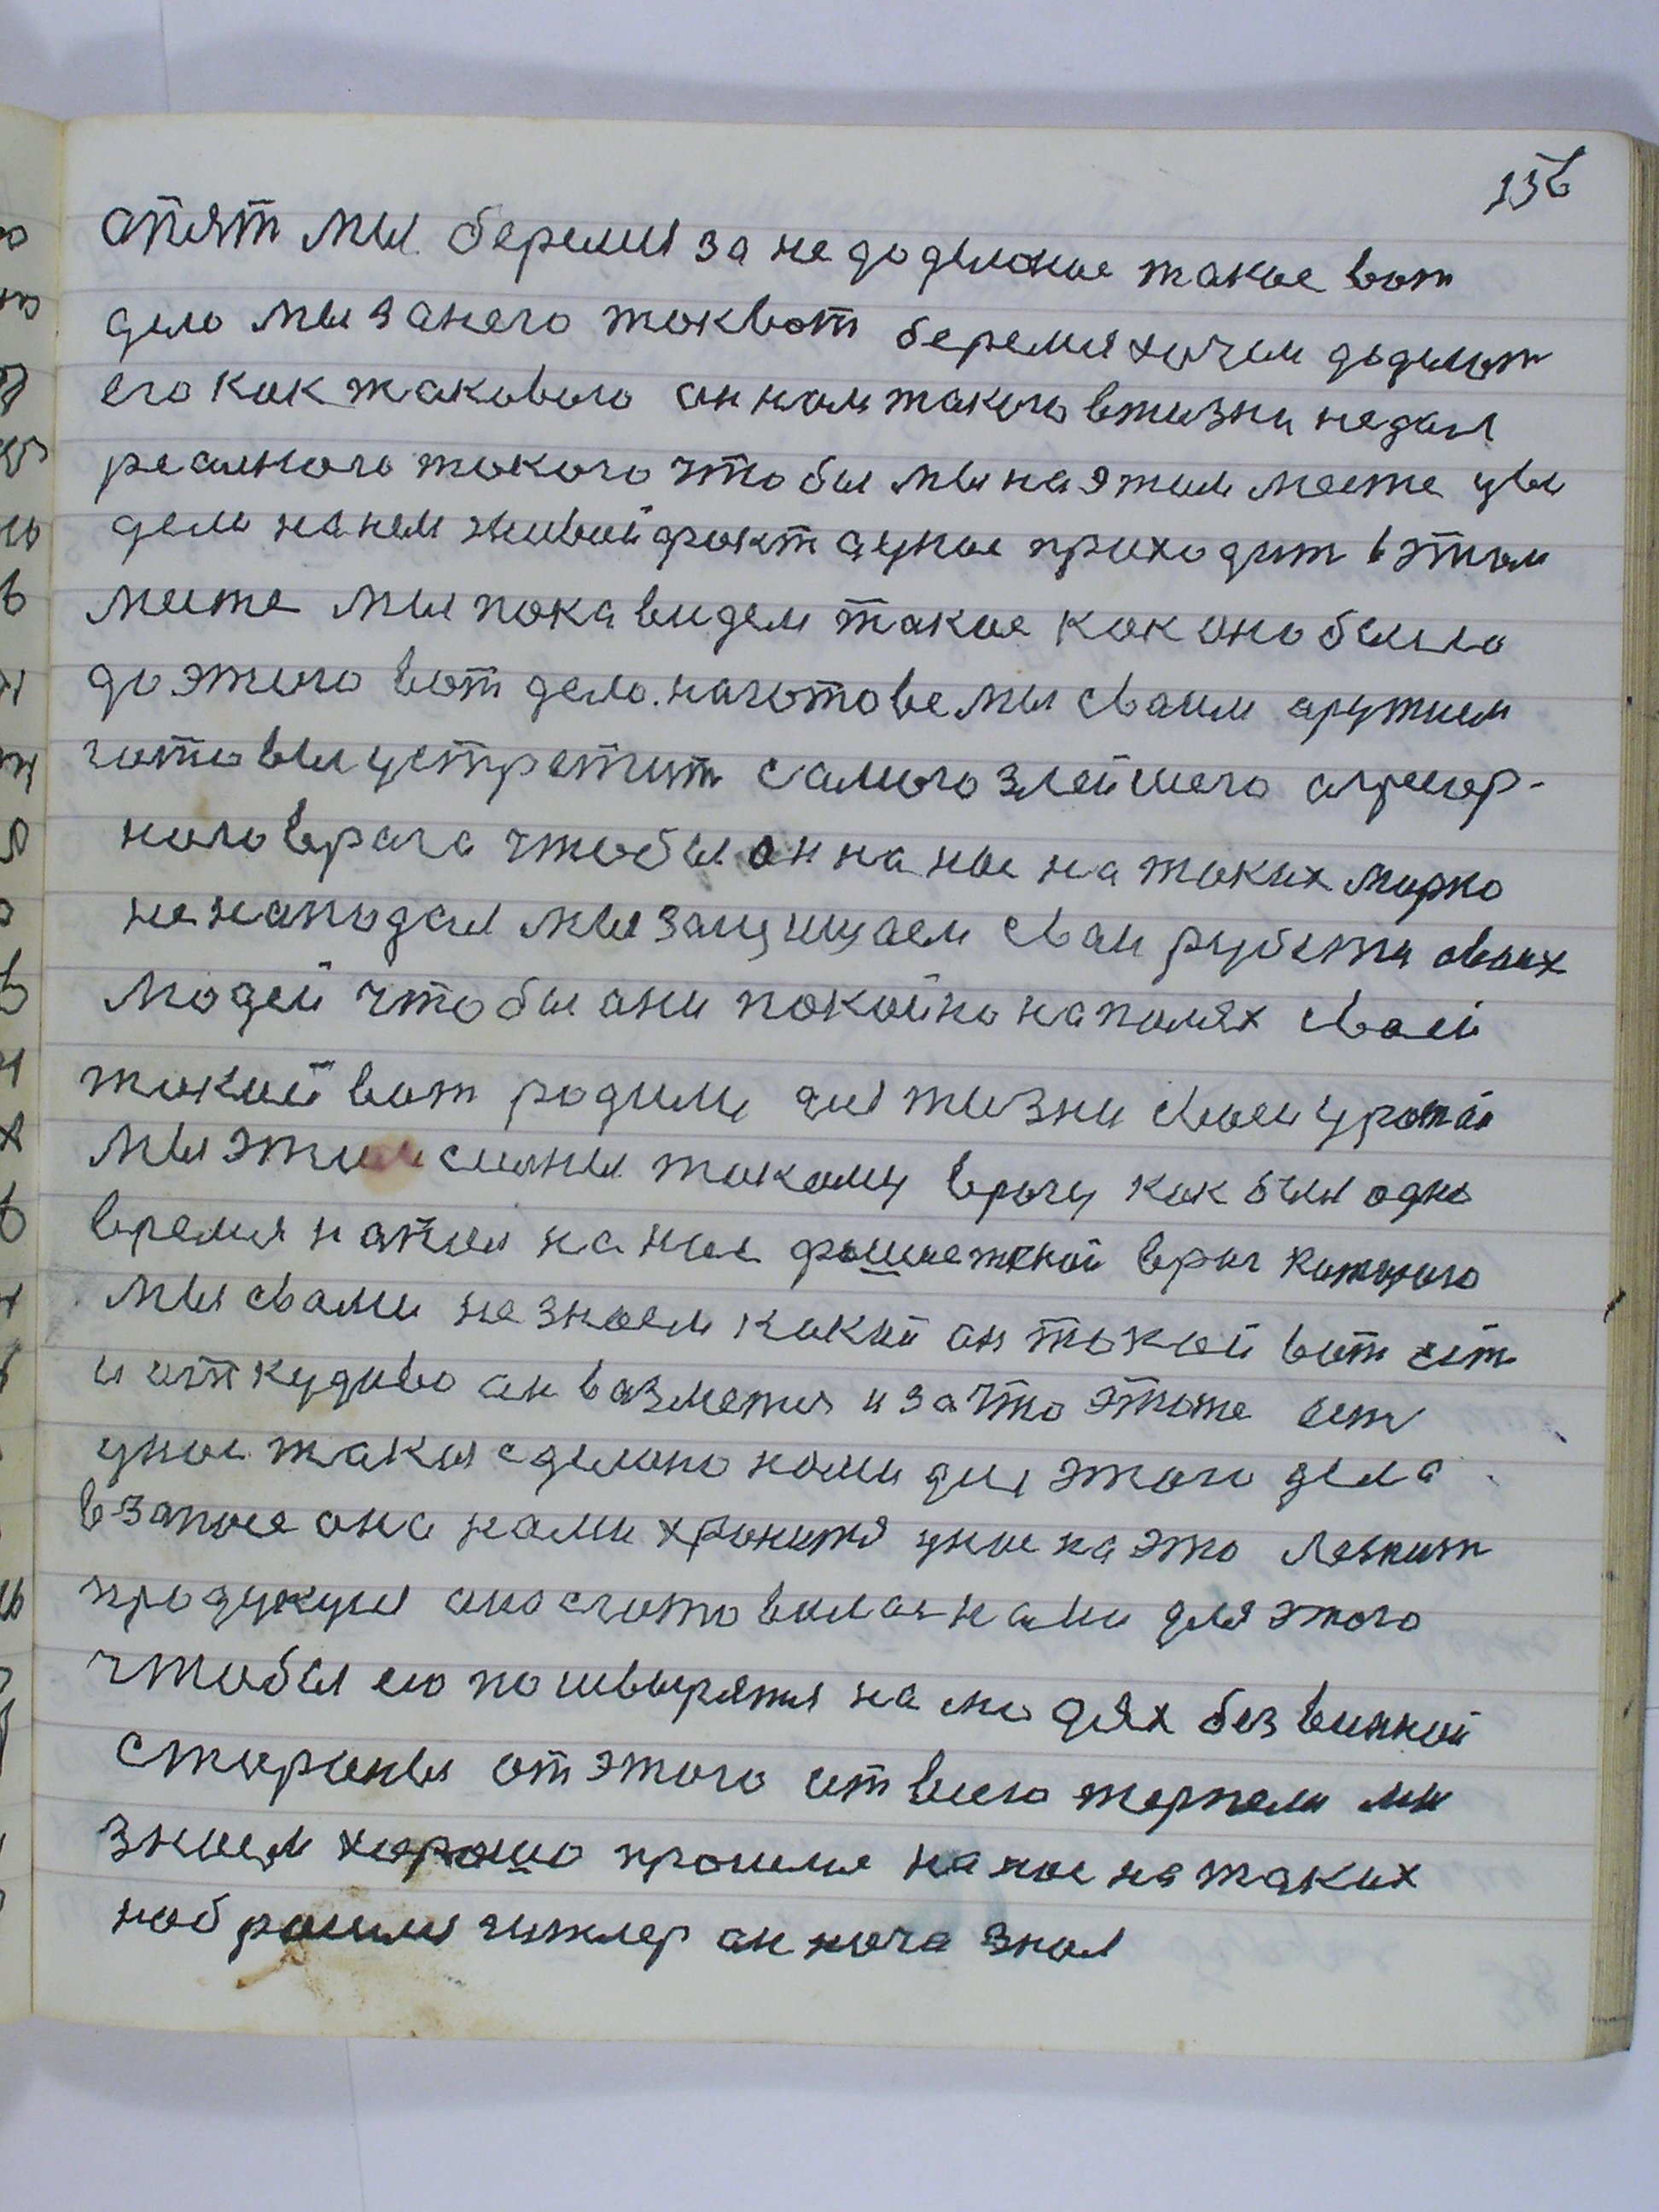 156
опят мы беремся за не доделоное такое вот
дело мы занего таквот беремся хочем доделат
его как таковаго он нам такого вжизни недал
реалного такого что бы мы на этим месте уви
дели на нем живой факт аунас приходит вэтом
месте мы пока видем такое как оно было
до этого вот дело. наготове мы сваим аружием
готовы устретит самого злейшего агресор-
ного врага чтобы он на нас на таких мирно
не нападал мы защищаем сваи рубежи сваих
людей что бы они покойно наполях сваей
такой вот родины для жизни своей урожай
мы этим силны такому врагу как был одно
время напал на нас фашисткой враг которого
мы свами не знаем какой он такой вот ест
и от кудаво он вазметися и за что этоже ест
унас такая сделано нами для этого дела
взапасе она нами хранится унас на это лежит
продукция она сготовилась нами для этого
чтобы ею пошвырятся на людях без всякой
стораны от этого от всего терпели мы
знаем хорошо прошлые на нас на таких
набрасилися гитлер он нечего знал